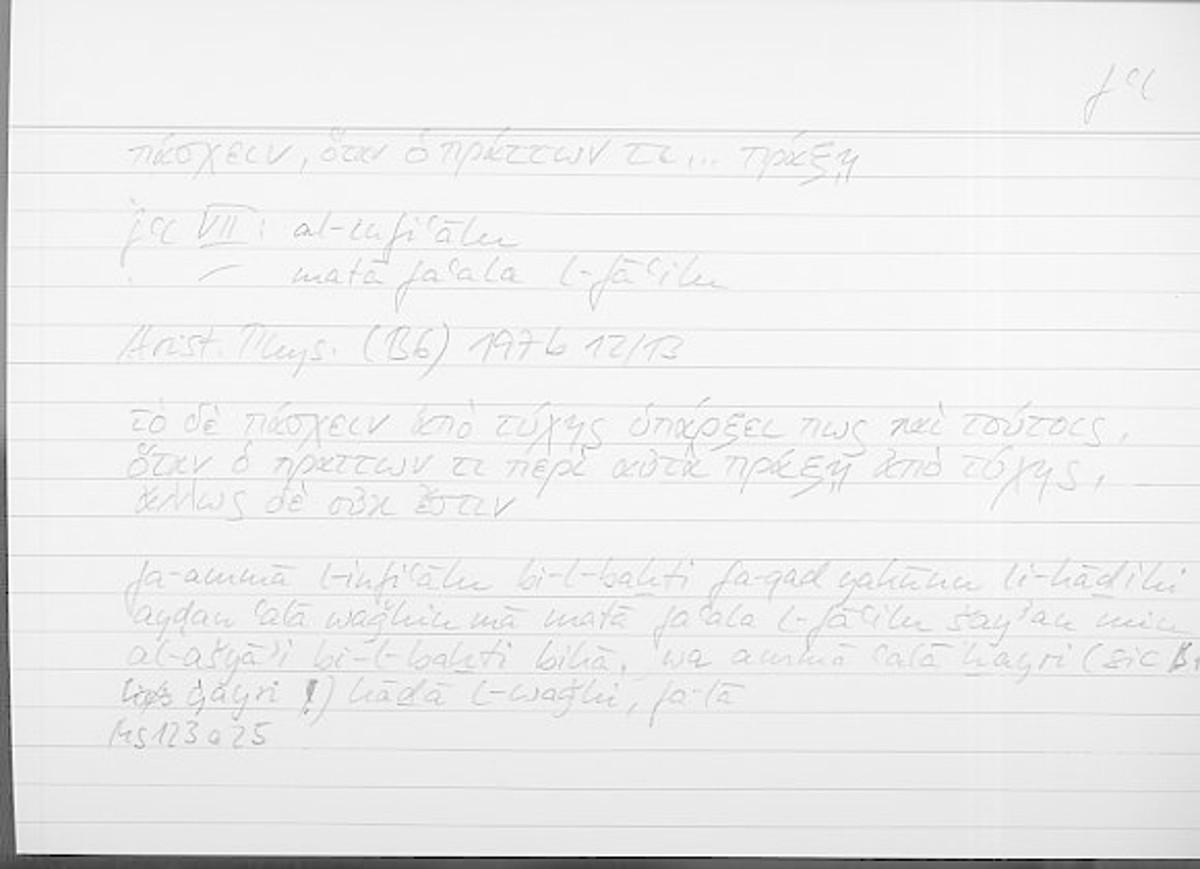 fʿl
πάσχειν, ὅταν ὁ πράττων τι ... πράξῃ
fʿl VII: al-infiʿālu
matā faʿala l-fāʿilu
Arist. Phys. (B6) 197b 12/13
τὸ δὲ πάσχειν ἀπὸ τύχης ὑπάρξει πως καὶ τούτοις,
ὅταν ὁ πραττων τι περὶ αὐτὰ πράξῃ ἀπὸ τύχης,
ἄλλως δὲ οὐκ ἔστιν
fa-ammā l-infiʿālu bi-l-baḫti fa-qad yakūnu li-hāḏihi
ayḍan ʿalā waǧhin mā matā faʿala l-fāʿilu šayʾan min
al-ašyāʾi bi-l-baḫti bihā, wa ammā ʿalā ḫayri (sic
ġayri !) hāḏā l-waǧhi, fa-lā
Ms 123 a 25